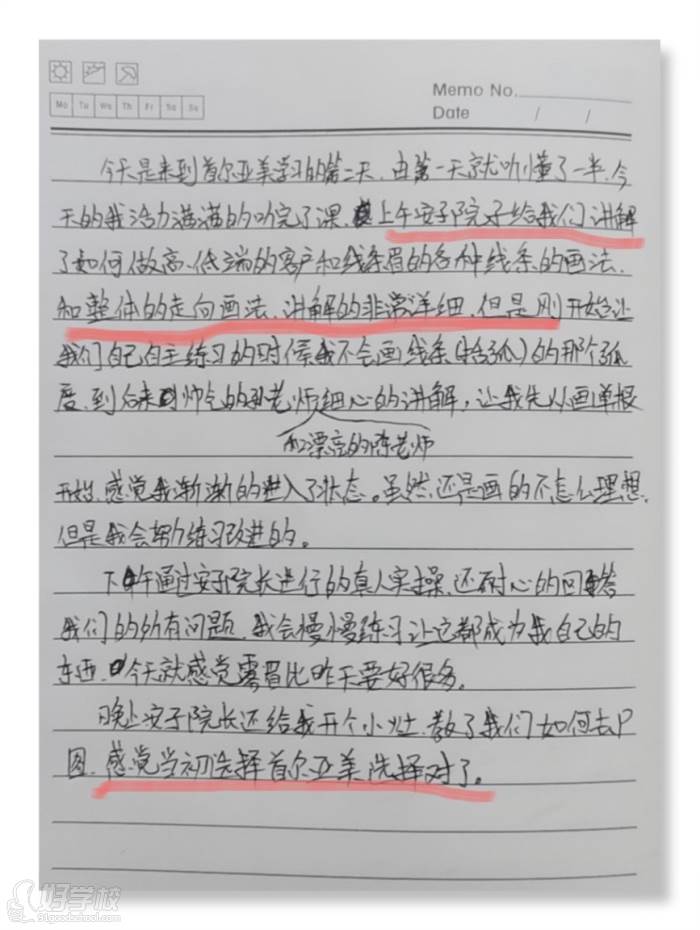 Memo No.
Mo Tu We Th Fr Sa Su
Date / /
今天是来到首尔亚美学习的第二天,由第一天就听懂了一半,今
天的我活力满满的听完了课,上午安子院子给我们讲解
了如何做高、低端的客户和线条眉的各种线条的画法,
和整体的走向画法,讲解的非常详细,但是刚开始让
我们自己自主练习的时候我不会画线条(括弧)的那个弧
度,到后来帅气的孙老师细心的讲解,让我先从画单根
和漂亮的陈老师
开始,感觉我渐渐的进入了状态。虽然还是画的不怎么理想,
但是我会努力练习改进的。
下午通过安子院长进行的真人实操,还耐心的回答
我们的所有问题,我会慢慢练习让这都成为我自己的
东西,今天就感觉雾眉比昨天要好很多。
晚上安子院长还给我开个小灶,教了我们如何去P
图,感觉当初选择首尔亚美选择对了。
好学校
91goodschool.com